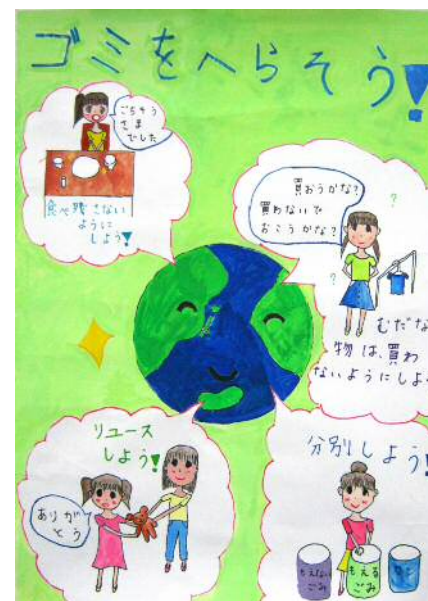 ゴミをへらそう!
ごちそう
さま
でした
食べ残さない
ように
しよう!
買おうかな?
買わないで
おこうかな?
?
?
むだな
物は、買わ
ないようにしよ
リユース
しよう!
ありが
とう
分別しよう!
もえない
ごみ
もえる
ごみ